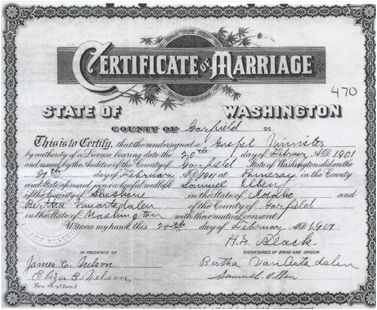 CERTIFICATE OF MARRIAGE
470
STATE OF WASHINGTON
COUNTY OF Garfield ss
This is to Certify, that the undersigned a Gospel Minister
by authority of a License bearing date the 20th day of February A.D. 1901
and issued by the Auditor of the County of Garfield State of Washington did on the
20th day of February A.D. 1901 at Pomeroy in the County
and State aforesaid join in lawful wedlock Samuel
of the County of Shoshone in the State of Idaho and
Bertha Vanartsdalen of the County of Garfield
in the State of Washington with their mutual consent
Witness my hand this 20th day of February A.D. 1901
H. Black
IN PRESENCE OF
SIGNATURES OF BRIDE AND GROOM
James C. Nelson
Bertha Vanartsdalen
Eliza E. Nelson
Samuel